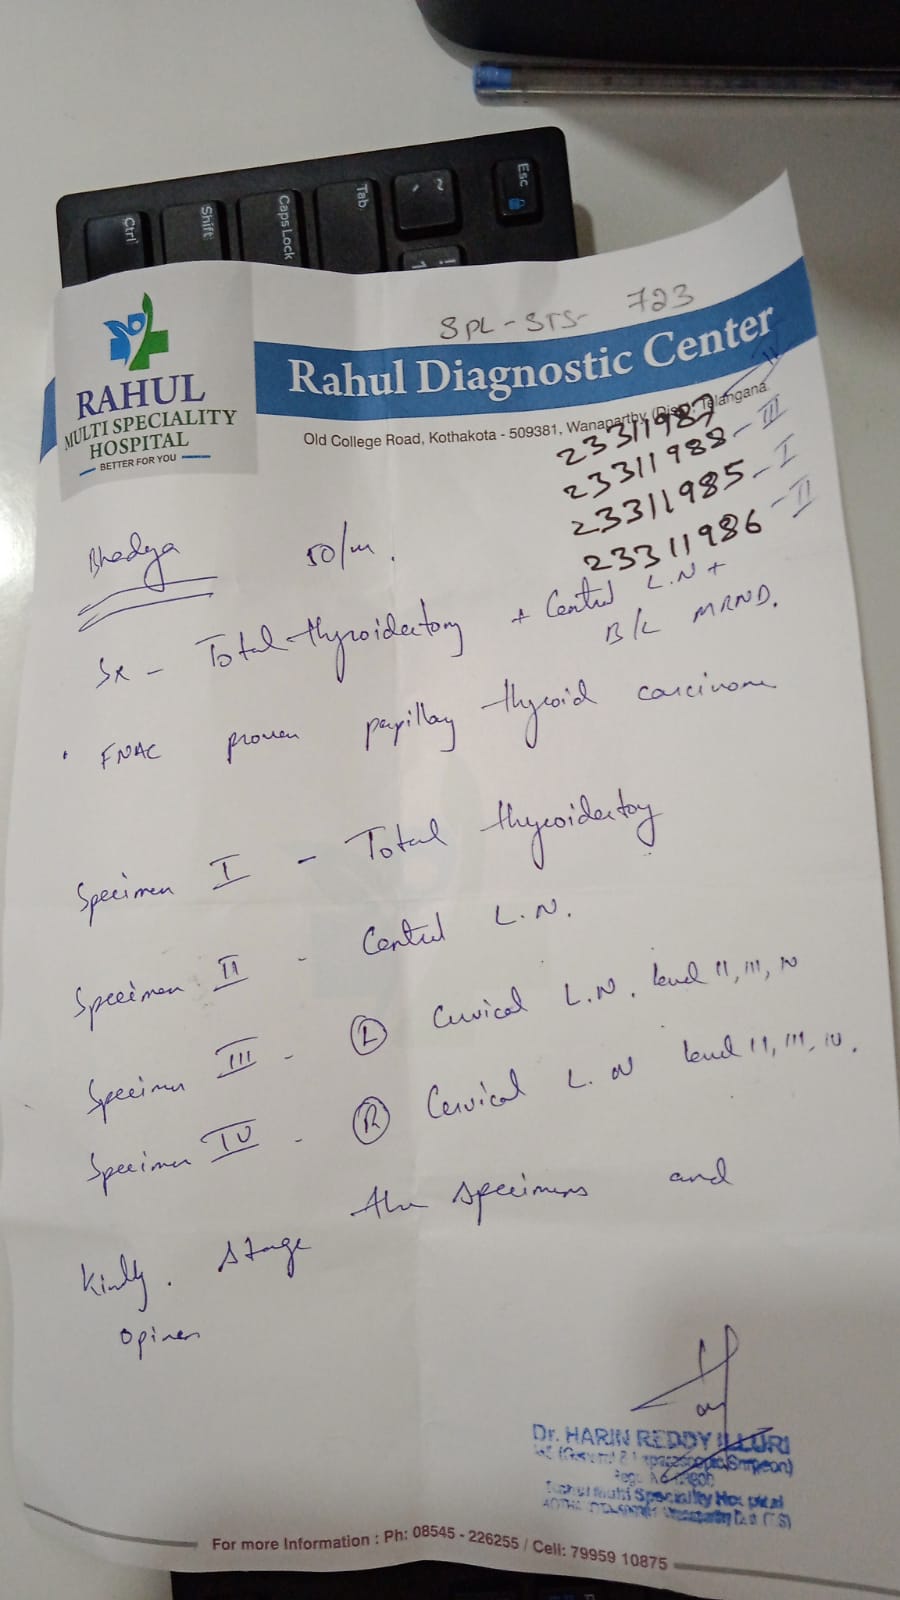 Esc
~
`
!
1
Tab
Caps Lock
Shift
Ctrl
SPL-STS- 723
RAHUL
MULTI SPECIALITY
HOSPITAL
BETTER FOR YOU
Rahul Diagnostic Center
Old College Road, Kothakota - 509381, Wanaparthy (Dist), Telangana
23311987
23311988 - III
23311985 - I
23311986 - II
Bhadya 50/m.
Sx - Total thyroidectomy + Central L.N +
B/L MRND.
FNAC proven papillary thyroid carcinoma
Specimen I - Total thyroidectoy
Specimen II - Central L.N.
Specimen III - (L) Cervical L.N. level II, III, IV
Specimen IV - (R) Cervical L.N level II, III, IV.
Kindly. stage the specimens and
opinen
Dr. HARIN REDDY ILLURI
MS (General & Laparoscopic Surgeon)
Rahul Multi Speciality Hospital
For more Information : Ph: 08545 - 226255 / Cell: 79959 10875